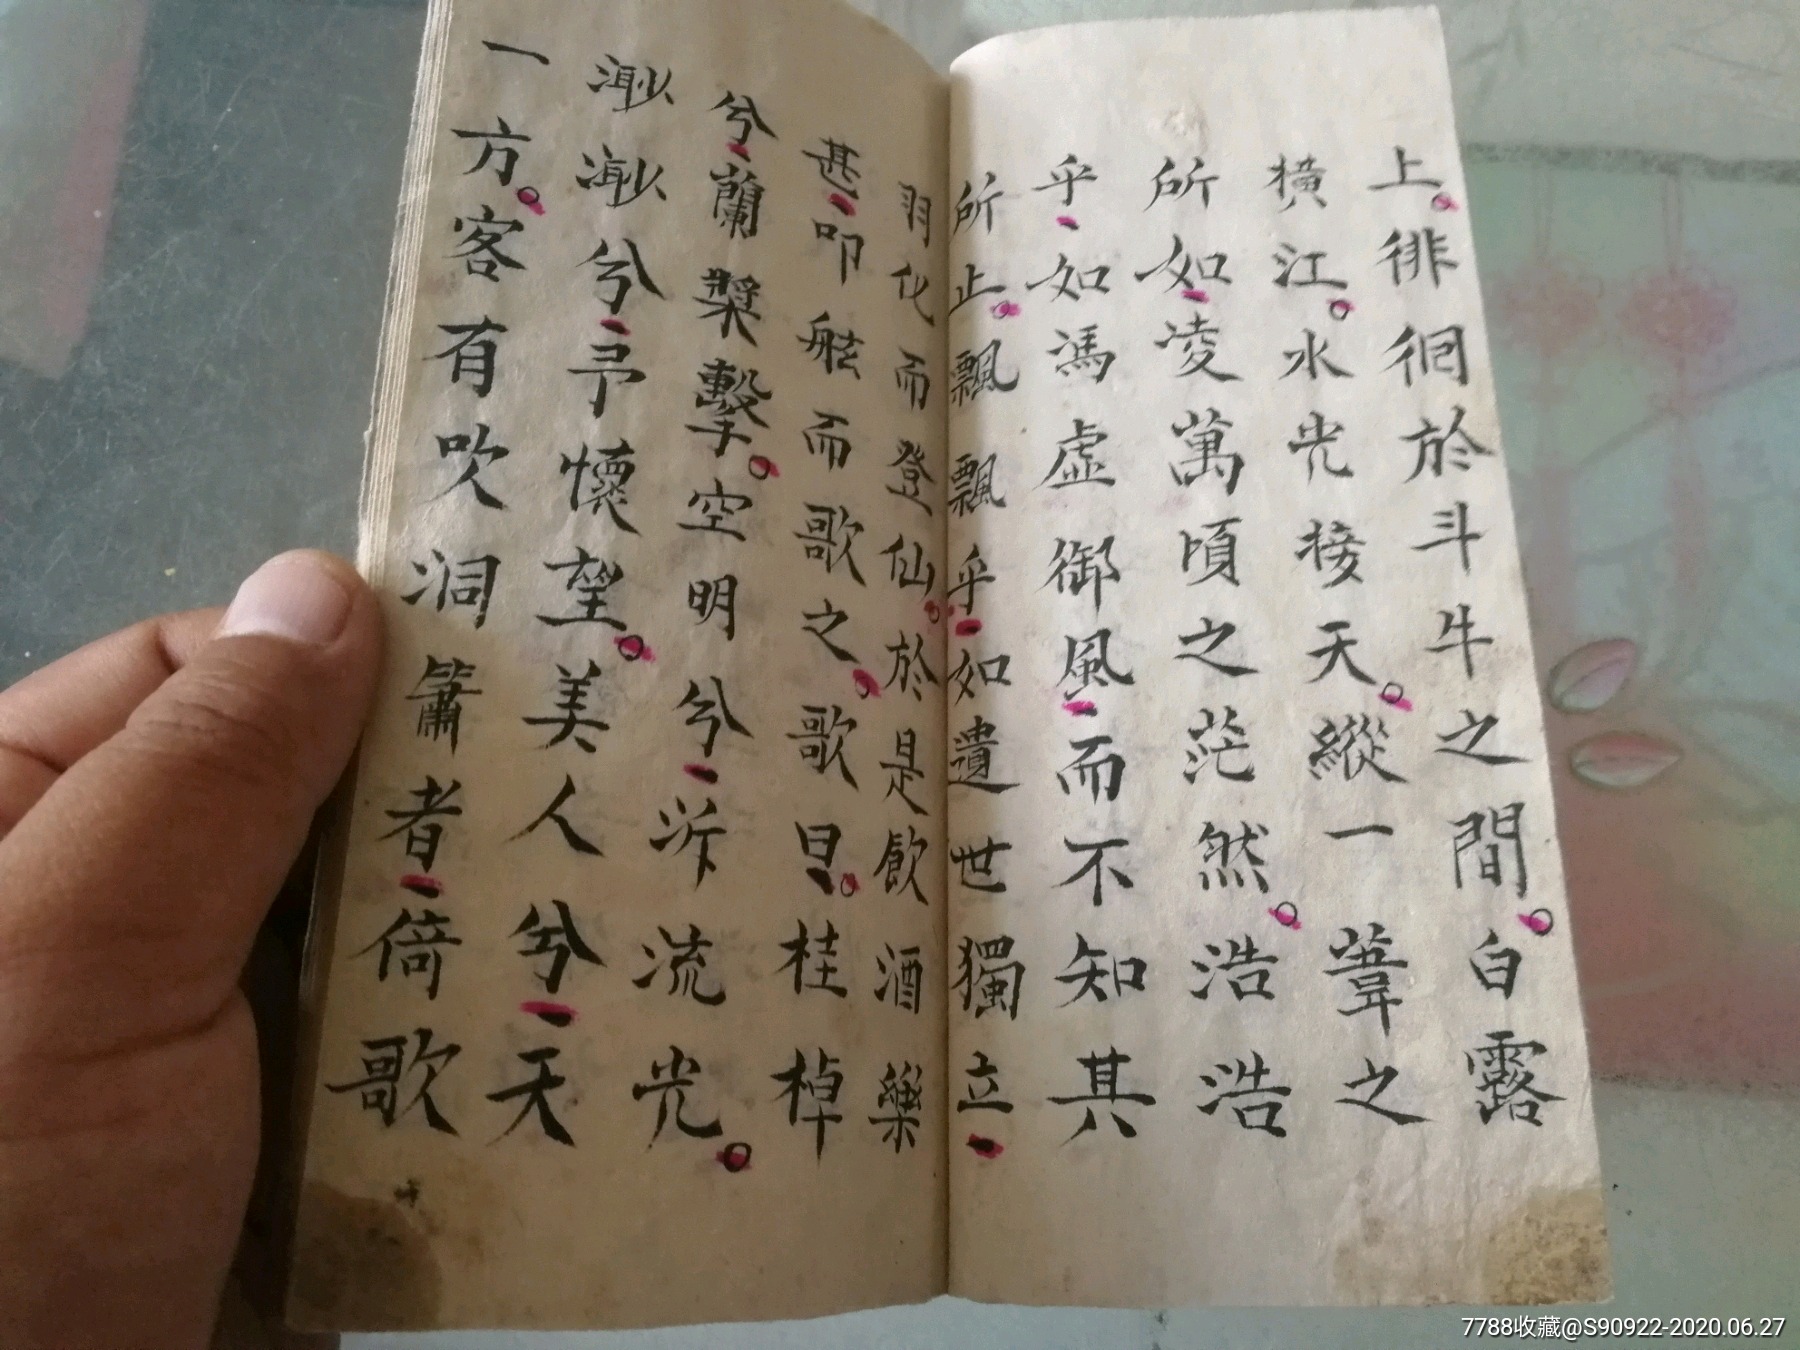 上。徘徊於斗牛之間。白露
橫江。水光接天。縱一葦之
所如、凌萬頃之茫然。浩浩
乎、如馮虛御風、而不知其
所止。飄飄乎、如遺世獨立、
羽化而登仙。於是飲酒樂
甚、叩舷而歌之。歌曰。桂棹
兮、蘭槳擊。空明兮、泝流光。
渺渺兮、予懷望。美人兮、天
一方。客有吹洞簫者、倚歌
7788收藏@S90922-2020.06.27